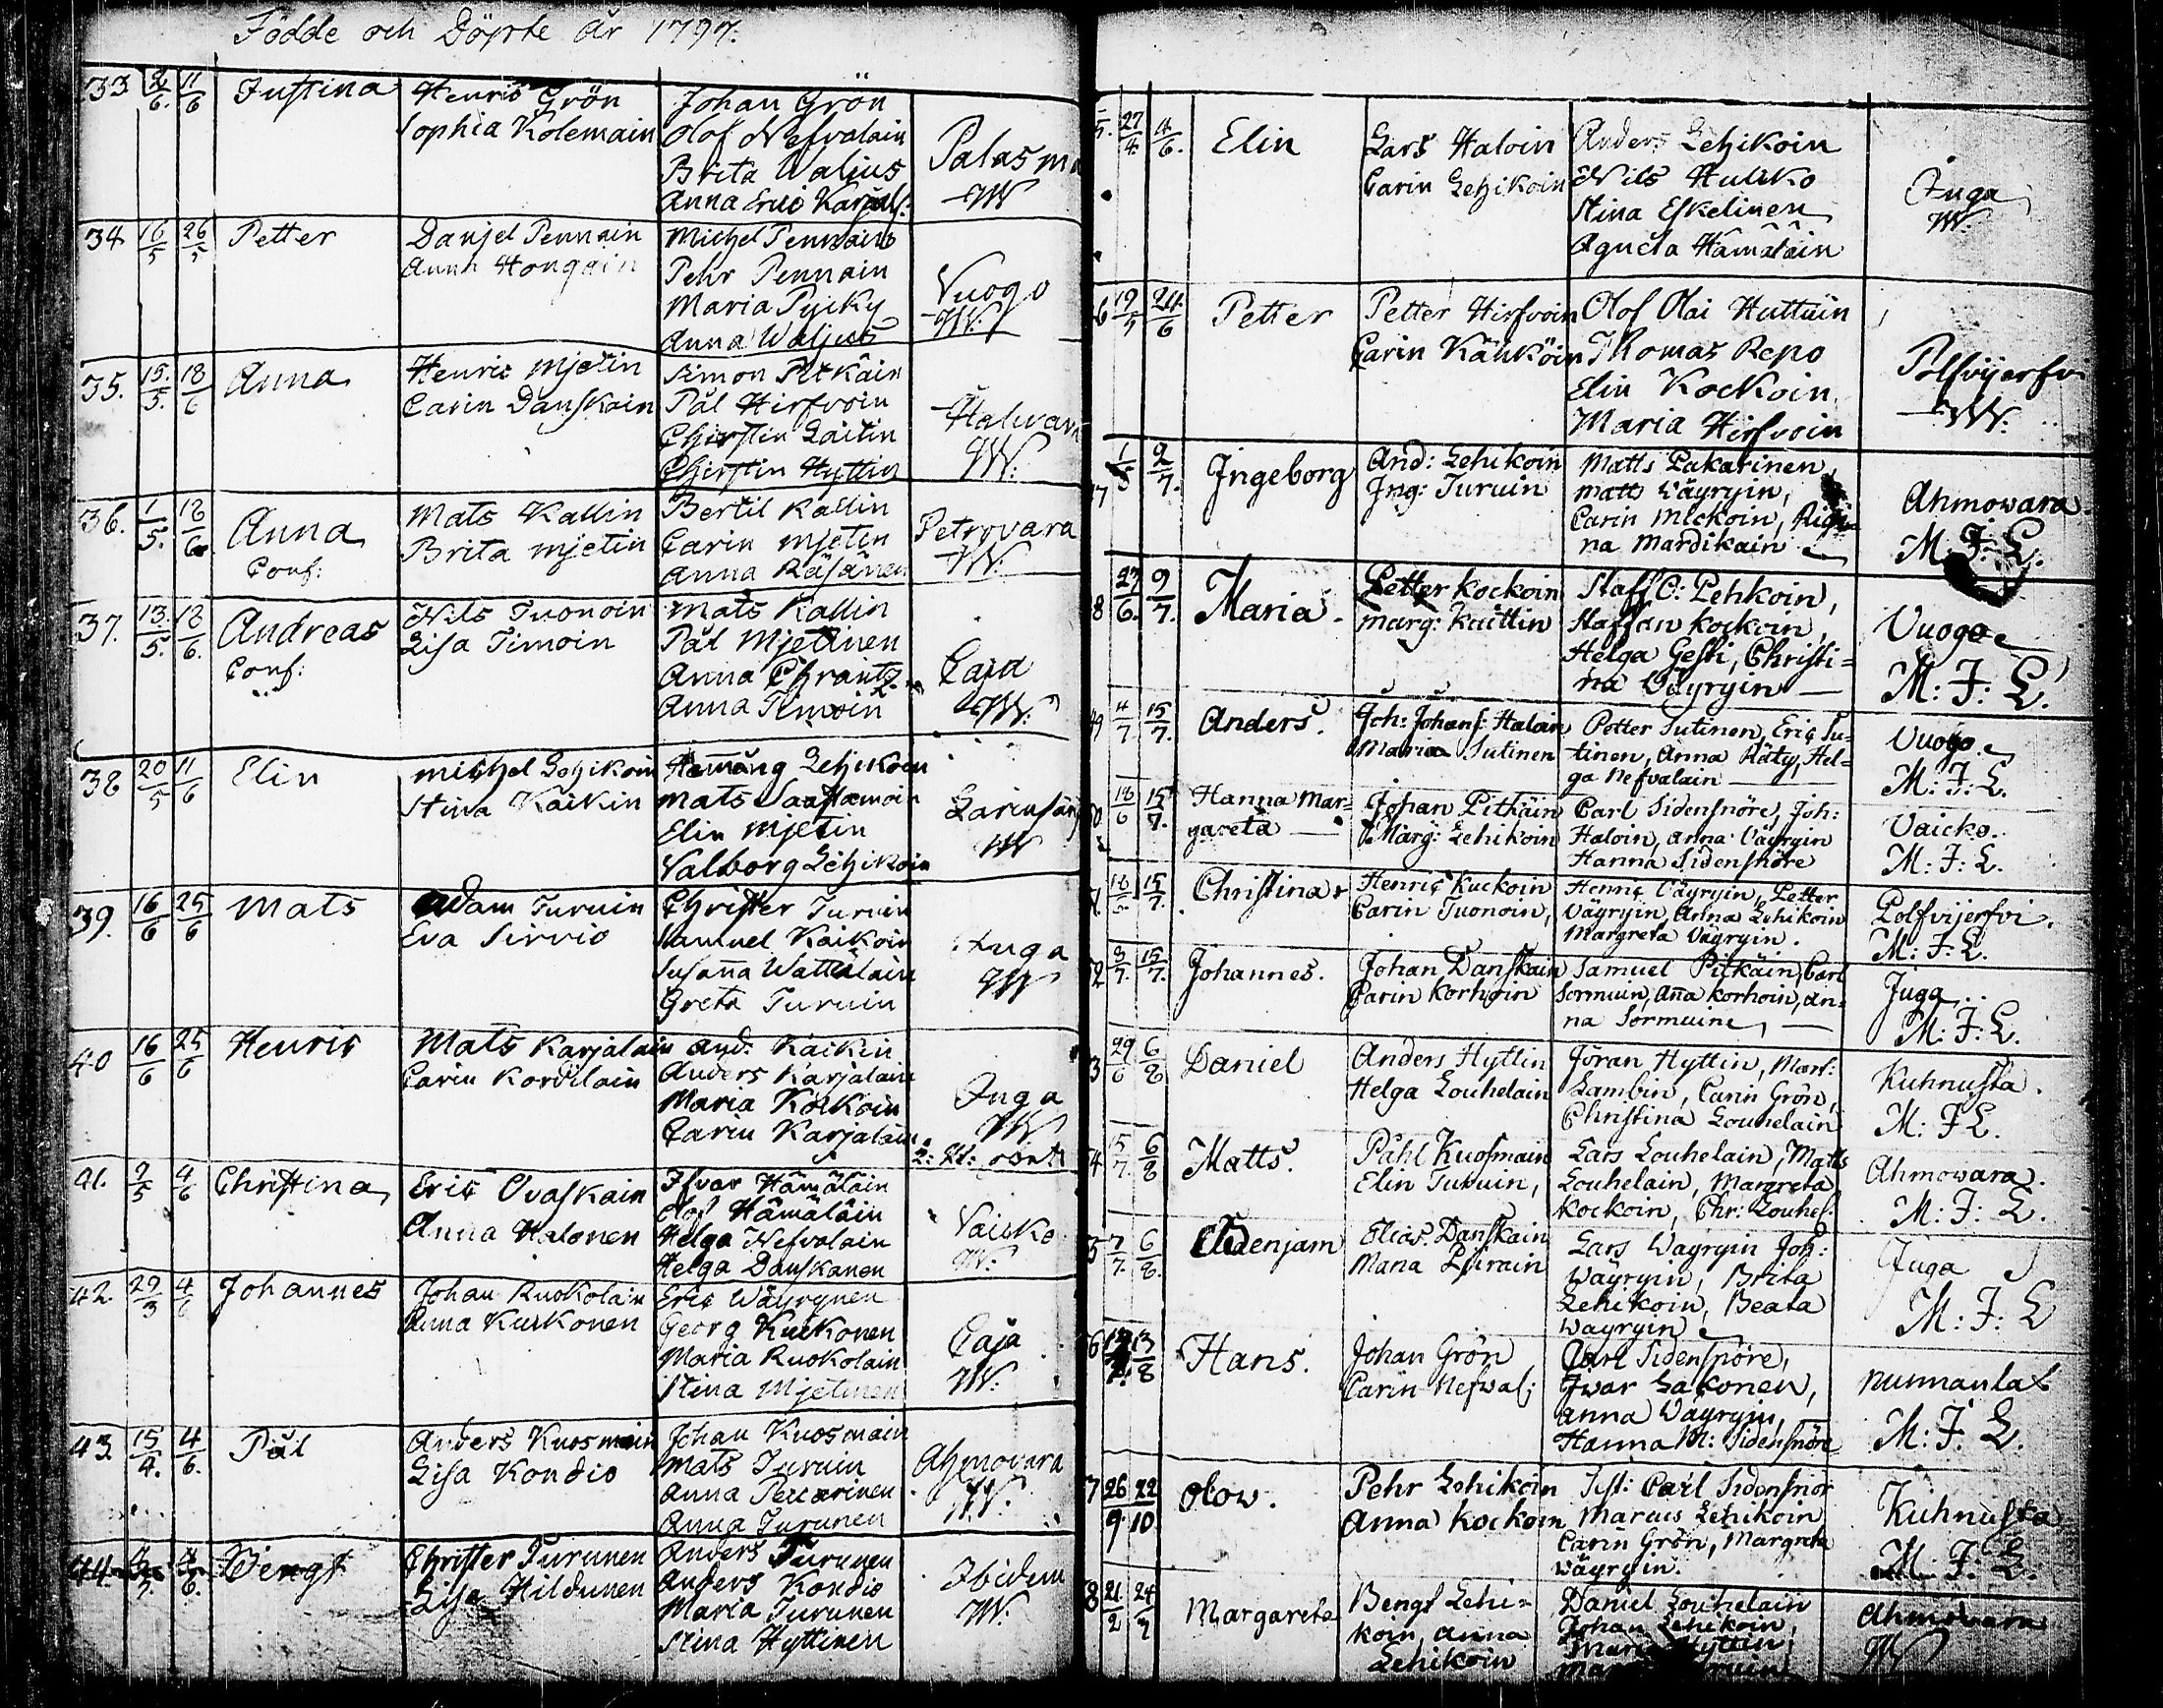 Födde och Döpte år 1797.
33 8/6. 11/6 Justina Henric Grön Johan Grön
Sophia Kolemain Olof Nefvalain
Brita Waljus Palasma
Anna Eric Karjal: W
34 16/5 26/5 Petter Danjel Pennain Michel Pennain
Anna Hongain Pehr Pennain
Maria Pycky Vuogo
Anna Waljus W:
35. 15./5. 18/6 Anna Henric Mjetin Simon Pitkäin
Carin Danskain Pål Hirfvoin
Chirstin Laitin Halivara
Chirstin Hyttin W:
36. 1/5. 18/6 Anna Mats Kallin Bertil Kallin
Conf: Brita Mjetin Carin Mjetin Petrovara
Anna Räsänen W:
37. 13./5. 18/6. Andreas Nils Tuonoin Mats Kallin
Conf: Lisa Timoin Pål Mjettinen
Anna Chrantz Caja
Anna Timoin W:
38 20/5 11/6 Elin Michel Lehikoin Hemming Lehikoin
Stina Kaikin Mats Saastamoin
Elin Mjetin Larinsari
Valborg Lehikoin W
39. 16/6 25/6 Mats Adam Turuin Christer Turuin
Eva Sirvio Samuel Kaikoin
Susanna Wattulain Juga
Greta Turuin W
40 16/6 25/6 Henric Mats Karjalain And: Kaikin
Carin Kordilain Anders Karjalain
Maria Kockoin Juga
Carin Karjalain W
41. 2/5 4/6 Christina Eric Ovaskain Ifvar Hämäläin
Anna Halonen Olof Hämäläin Vaicko
Helga Nefvalain W:
Helga Danskanen
42. 29/3 4/6 Johannes Johan Ruokolain Eric Wäyrynen
Anna Kuckonen Georg Kuckonen Caja
Maria Ruokolain W:
Stina Mjetinen
43. 15/4. 4/6. Pål Anders Kuosmain Johan Kuosmain
Lisa Kondio Mats Turuin Ahmovara
Anna Peccarinen W:
Anna Turunen
44. Bengt Christer Turunen Anders Turunen
Lisa Hildunen Anders Kondio Ibidem
Maria Turunen W:
Stina Hyttinen
5. 27/4. 4/6. Elin Lars Haloin Anders Lehikoin
Carin Lehikoin Nils Hulcko
Stina Eskelinen Juga
Agneta Hämäläin W:
6 19/5 24/6 Petter Petter Hirfvoin Olof Olai Huttuin
Carin Kähköin Thomas Repo
Elin Kockoin Polfvijerfvi
Maria Hirfvoin W:
7 1/5 2/7. Ingeborg And: Lehikoin Matts Pakarinen,
Ing: Turuin Matts Väyryin, Ahmowara
Carin Mickoin,
na Mardikain M: J: L.
8 27/6. 9/7. Maria. Petter Kockoin Staff O: Pehkoin,
Marg: Kaittin Staffan Kockoin, Vuogo
Helga Gesti, Christi=
na Väyryin — M: J: L.
49 4/7 15/7. Anders. Joh: Johans: Haloin Petter Sutinen, Eric Su=
Maria Sutinen tinen, Anna Räty, Hel= Vuogo
ga Nefvalain — M: J: L.
0 18/6 15/7. Hanna Mar= Johan Pitkäin Carl Sidensnöre, Joh:
gareta — Marg: Lehikoin Haloin, Anna Väyryin Vaicko.
Hanna Sidensnöre M: J: L.
1 18/5. 15/7. Christina Henric Kuckoin Henric Väyryin, Petter
Carin Tuonoin, Väyryin, Anna Lehikoin Polfvijerfvi.
Margreta Väyryin. M: J: L.
52 3/7. 15/7. Johannes. Johan Danskain Samuel Pitkäin, Carl
Carin Korhoin Sormuin, Anna Korhoin, An= Juga
na Sormuine, — M: J: L.
3 29/6 6/8 Daniel Anders Hyttin Jöran Hyttin, Mart:
Helga Louhelain Lambin, Carin Grön, Kuhnusta.
Christina Louhelain M: J: L.
4 5/7. 6/8 Matts. Påhl Kuosmain Lars Louhelain, Matts
Elin Turuin, Louhelain, Margreta Ahmowara.
Kockoin, Chr: Louhel: M: J: L.
5 7/7. 6/8. Benjam Elias Danskain Lars Wäyryin Joh:
Maria Piirain Wäyryin, Brita Juga
Lehikoin, Beata M: J: L
Wäyryin
6 13/8 Hans. Johan Grön Carl Sidensnöre,
Carin Nefval: Iwar Lakonen, Nunnanlax
Anna Wäyryin, M: J: L.
Hanna M: Sidensnöre
7 26/9 22/10 Olow. Pehr Lehikoin Test: Carl Sidensnör
Anna Kockoin Marcus Lehikoin Kuhnusta
Carin Grön, Margreta M. J: L.
Wäyryin.
8 21./2 24/2 Margareta Bengt Lehi= Daniel Louhelain
koin, Anna Johan Lehikoin, Ahmowara
Lehikoin Maria Hyttin W